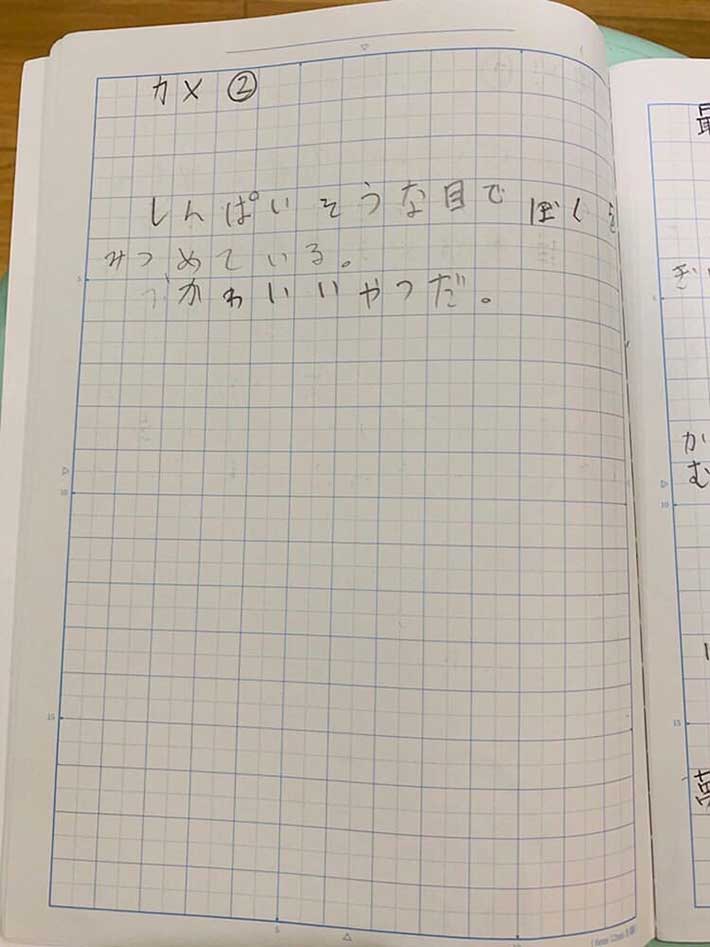 カメ ②
しんぱいそうな目で ぼくを
みつめている。
かわいいやつだ。
最
ぎ
か
む
5
10
15
5
10
15
5